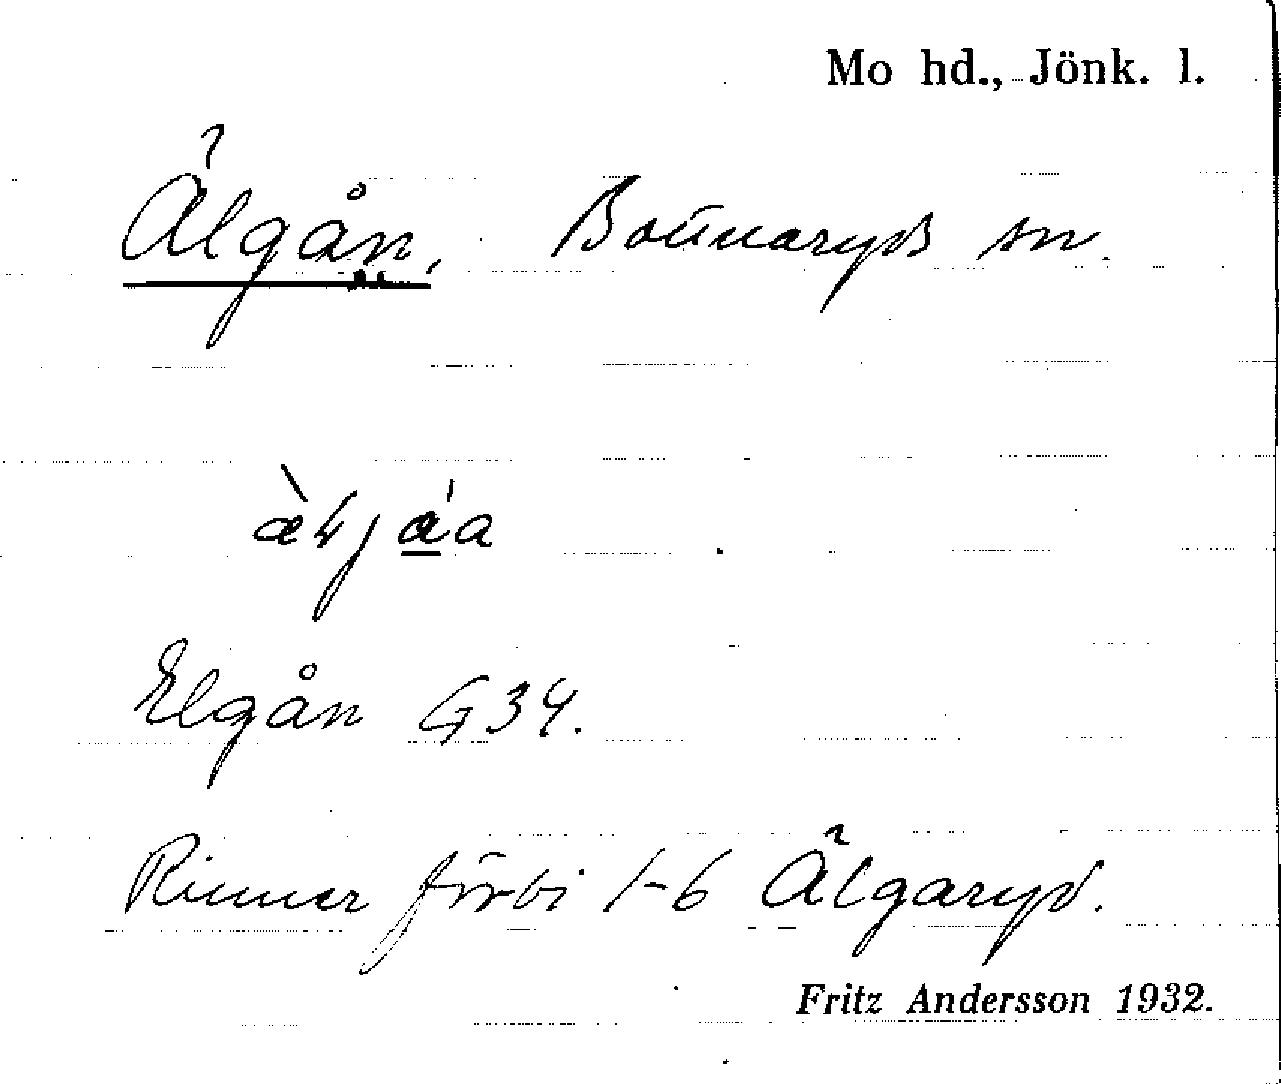 Mo hd., Jönk. l.
Älgån, Bottnaryds sn.
Elgån G34.
Rinner förbi 1-6 Älgaryd.
Fritz Andersson 1932.